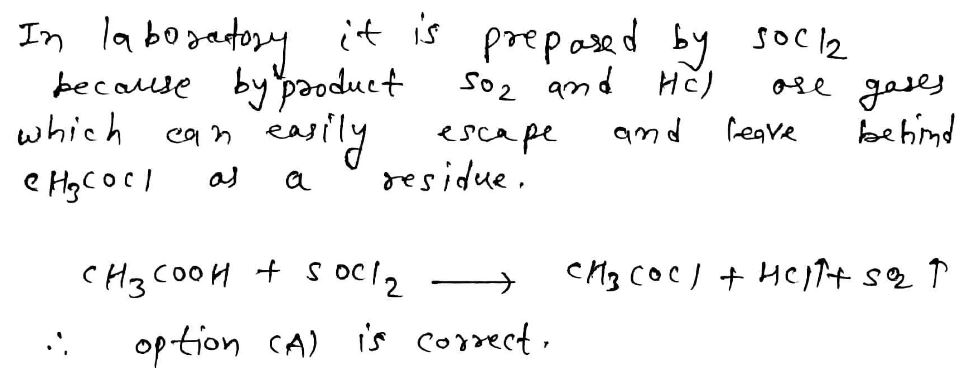 In laboratory it is prepared by SOCl2
because by product SO2 and HCl are gases
which can easily escape and leave behind
CH3COCl as a residue.
CH3COOH + SOCl2 → CH3COCl + HCl↑ + SO2 ↑
∴ option (A) is correct.